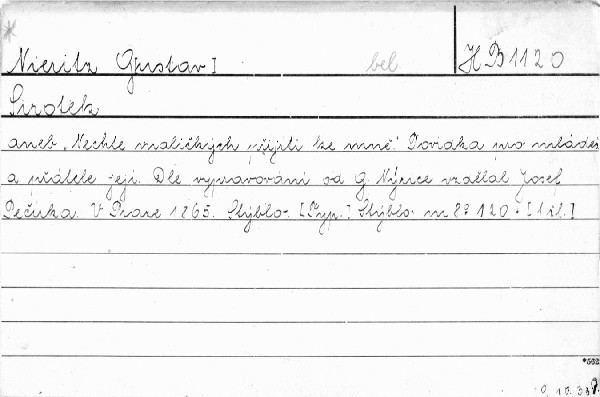 Nieritz Gustav I bel H B 1120
Sirotek
aneb „Nechte maličkých přijíti ke mně.“ Povídka pro mládež
a přátele její. Dle vypravování od G. Nýrice vzdělal Josef
Pečírka. V Praze 1865. Stýblo. [Typ.] Stýblo. m. 8° 120. [1 il.]
*552